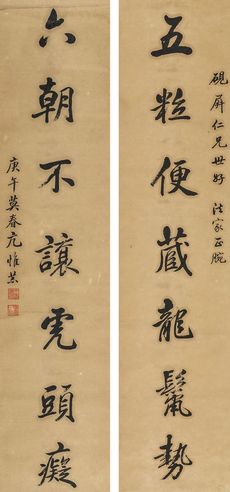 硯屏仁兄世好 法家正腕
五粒便藏龍鬣勢
六朝不讓虎頭癡
庚午莫春亢惟恭